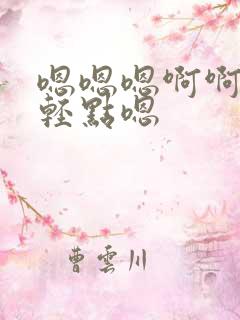 嗯嗯嗯啊啊
輕點嗯
曹雲川